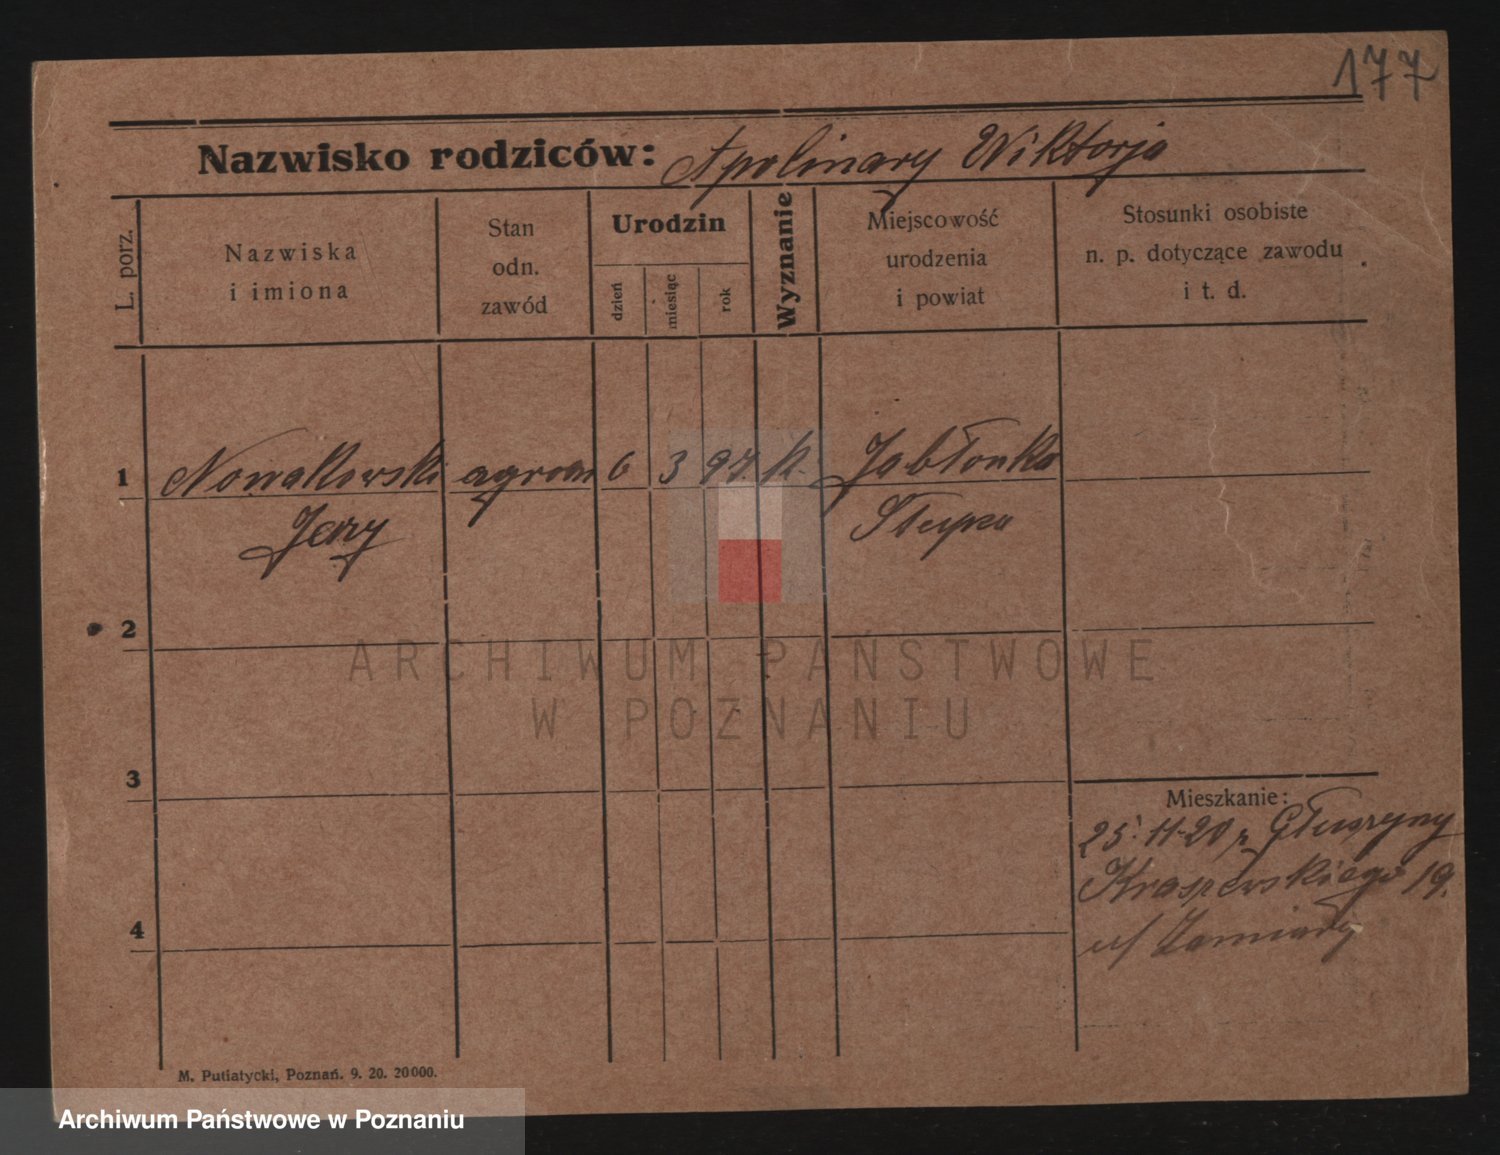 177
Nazwisko rodziców: Apolinary Wiktorja
L. porz.
Nazwiska
i imiona
Stan
odn.
zawód
Urodzin
dzień
miesiąc
rok
Wyznanie
Miejscowość
urodzenia
i powiat
Stosunki osobiste
n. p. dotyczące zawodu
i t. d.
1 Nowakowski agron 6 3 97. k. Jabłonka
Jerzy Słupca
2
3
4
Mieszkanie:
25. 11. 20 z Głuszyny
Kraszewskiego 19.
u/
M. Putiatycki, Poznań. 9. 20. 20000.
ARCHIWUM PAŃSTWOWE
W POZNANIU
Archiwum Państwowe w Poznaniu